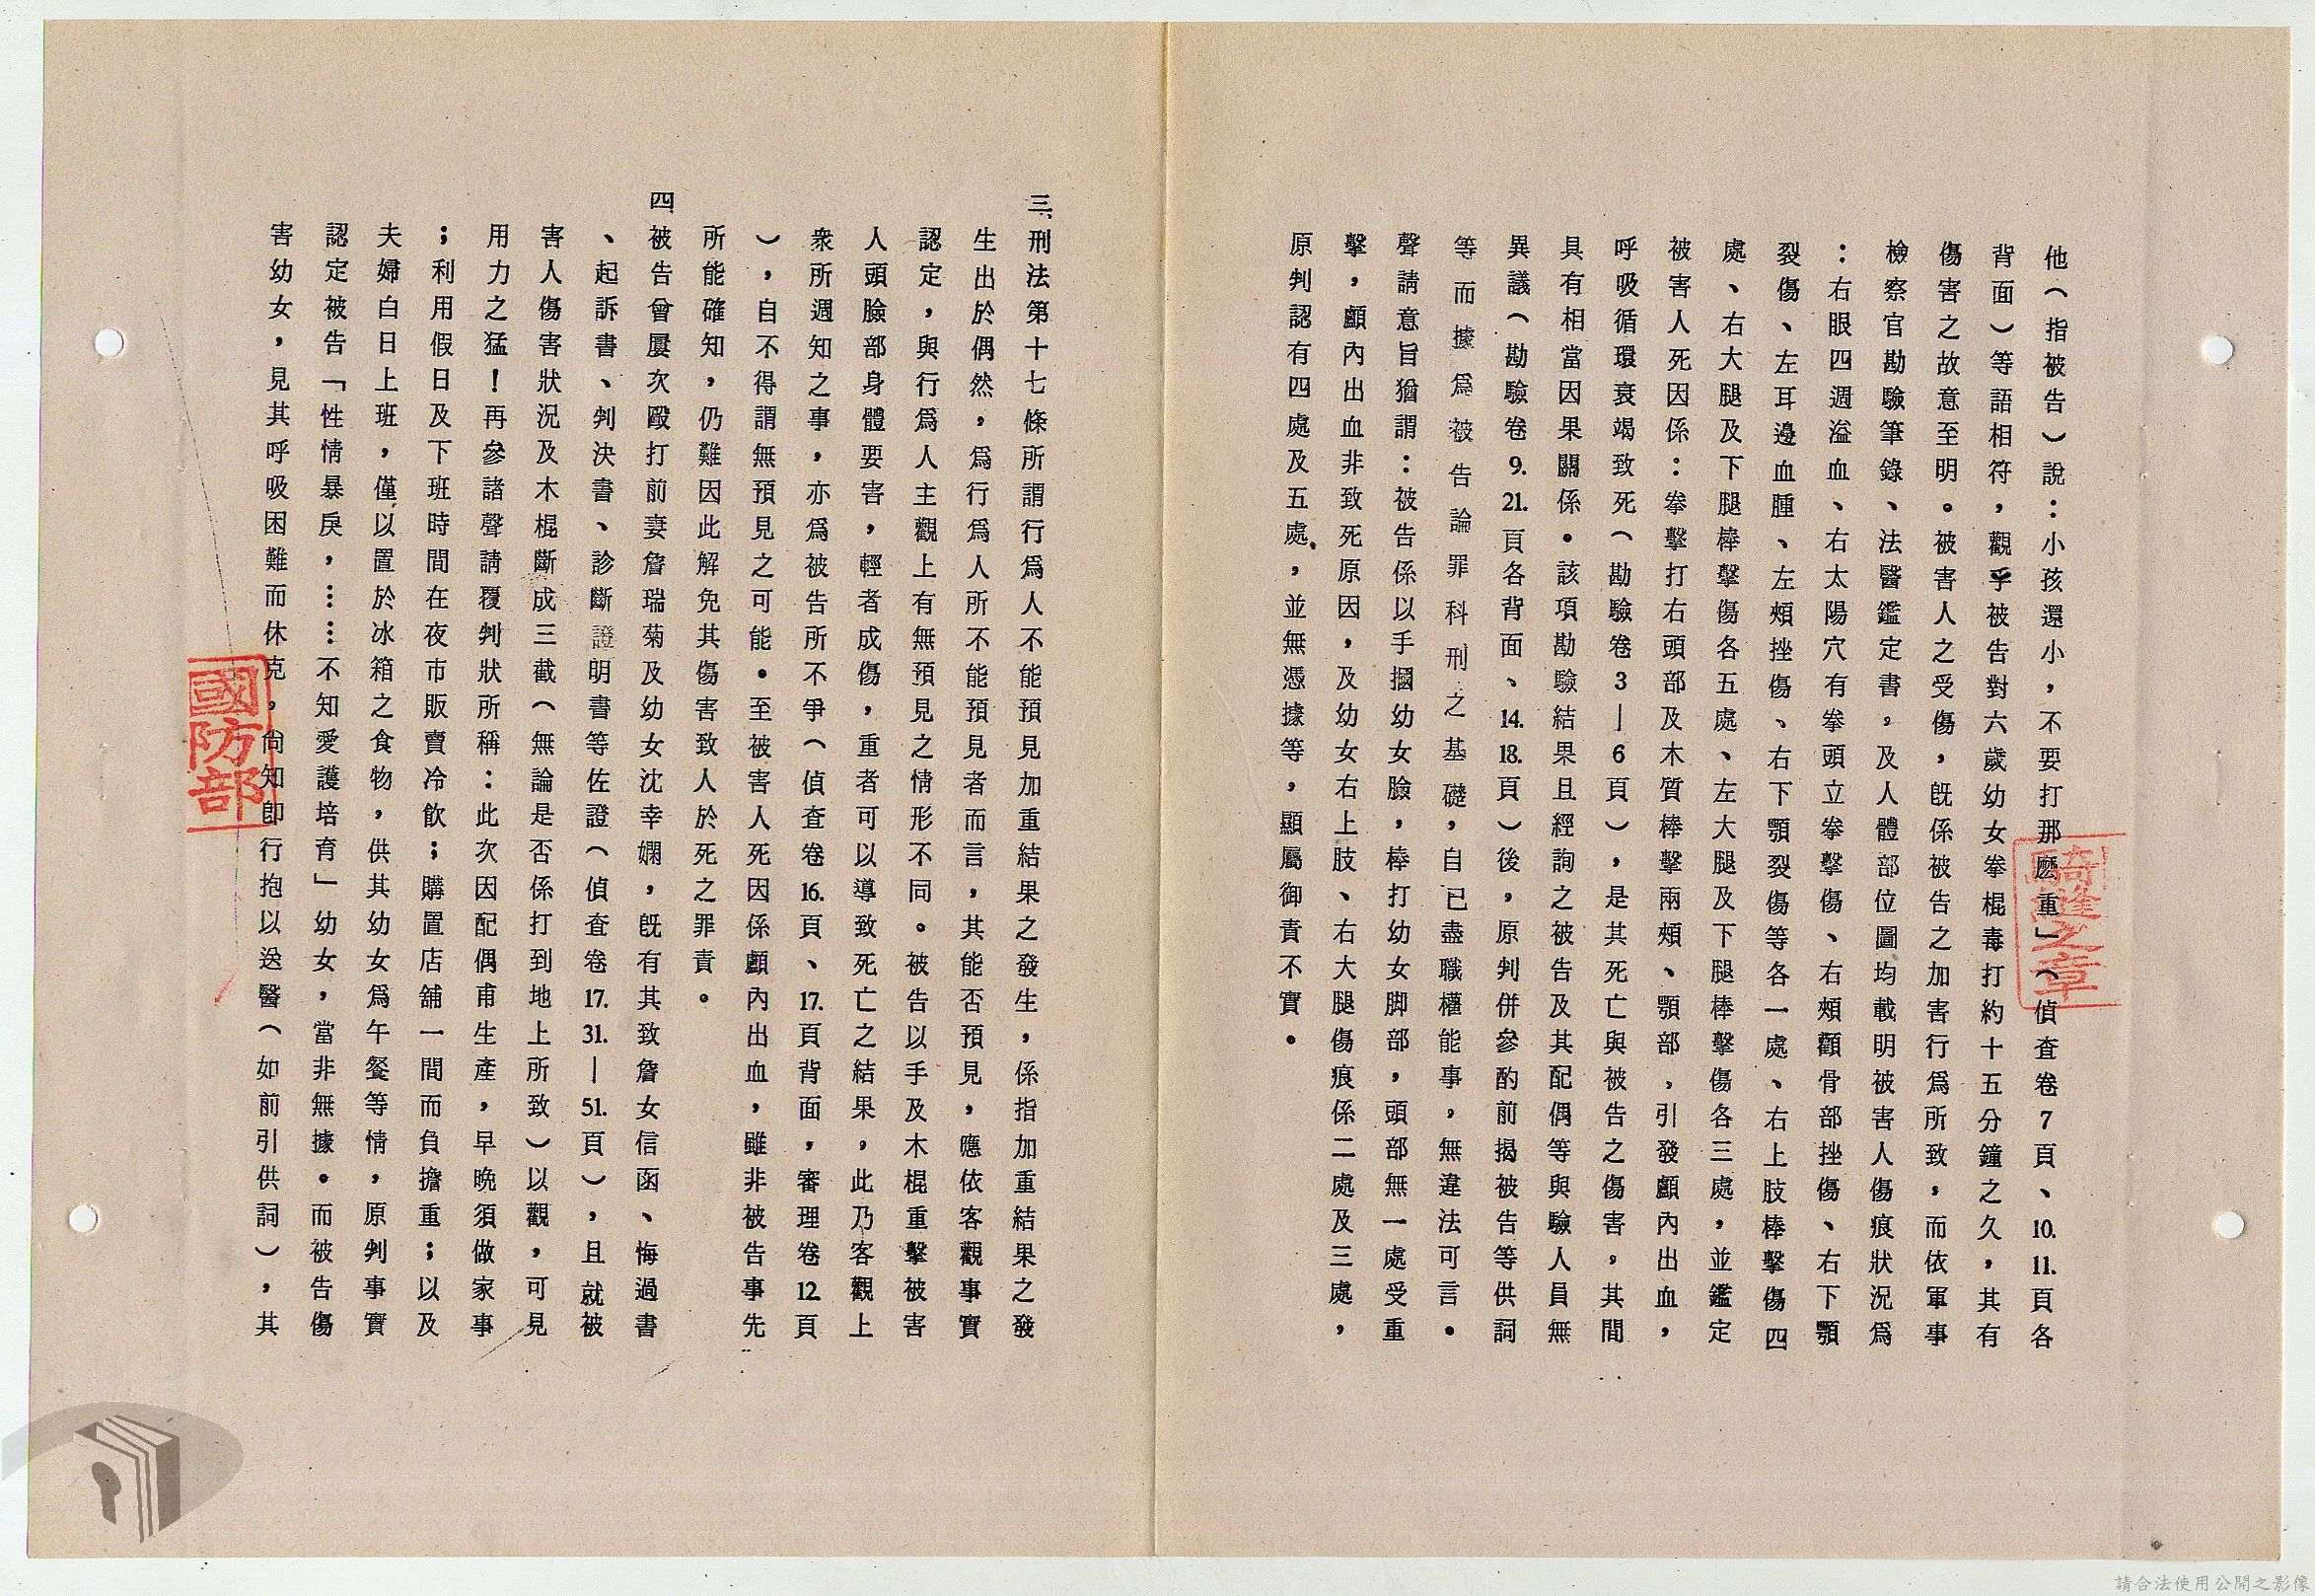 他（指被告）說：小孩還小，不要打那麽重」（偵查卷7頁、10.11.頁各
背面）等語相符，觀乎被告對六歲幼女拳棍毒打約十五分鐘之久，其有
傷害之故意至明。被害人之受傷，既係被告之加害行爲所致，而依軍事
檢察官勘驗筆錄、法醫鑑定書，及人體部位圖均載明被害人傷痕狀況爲
：右眼四週溢血、右太陽穴有拳頭立拳擊傷、右頰顴骨部挫傷、右下顎
裂傷、左耳邊血腫、左頰挫傷、右下顎裂傷等各一處、右上肢棒擊傷四
處、右大腿及下腿棒擊傷各五處、左大腿及下腿棒擊傷各三處，並鑑定
被害人死因係：拳擊打右頭部及木質棒擊兩頰、顎部，引發顱內出血，
呼吸循環衰竭致死（勘驗卷3—6頁），是其死亡與被告之傷害，其間
具有相當因果關係。該項勘驗結果且經詢之被告及其配偶等與驗人員無
異議（勘驗卷9.21.頁各背面、14.18.頁）後，原判併參酌前揭被告等供詞
等而據爲被告論罪科刑之基礎，自已盡職權能事，無違法可言。
聲請意旨猶謂：被告係以手摑幼女臉，棒打幼女脚部，頭部無一處受重
擊，顱內出血非致死原因，及幼女右上肢、右大腿傷痕係二處及三處，
原判認有四處及五處，並無憑據等，顯屬御責不實。
三、刑法第十七條所謂行爲人不能預見加重結果之發生，係指加重結果之發
生出於偶然，爲行爲人所不能預見者而言，其能否預見，應依客觀事實
認定，與行爲人主觀上有無預見之情形不同。被告以手及木棍重擊被害
人頭臉部身體要害，輕者成傷，重者可以導致死亡之結果，此乃客觀上
衆所週知之事，亦爲被告所不爭（偵查卷16.頁、17.頁背面，審理卷12.頁
），自不得謂無預見之可能。至被害人死因係顱內出血，雖非被告事先
所能確知，仍難因此解免其傷害致人於死之罪責。
四、被告曾屢次毆打前妻詹瑞菊及幼女沈幸嫻，既有其致詹女信函、悔過書
、起訴書、判決書、診斷證明書等佐證（偵查卷17.31.—51.頁），且就被
害人傷害狀況及木棍斷成三截（無論是否係打到地上所致）以觀，可見
用力之猛！再參諸聲請覆判狀所稱：此次因配偶甫生產，早晚須做家事
；利用假日及下班時間在夜市販賣冷飲；購置店舖一間而負擔重；以及
夫婦白日上班，僅以置於冰箱之食物，供其幼女爲午餐等情，原判事實
認定被告「性情暴戾，……不知愛護培育」幼女，當非無據。而被告傷
害幼女，見其呼吸困難而休克，尙知卽行抱以送醫（如前引供詞），其
國防部
騎縫之章
請合法使用公開之影像